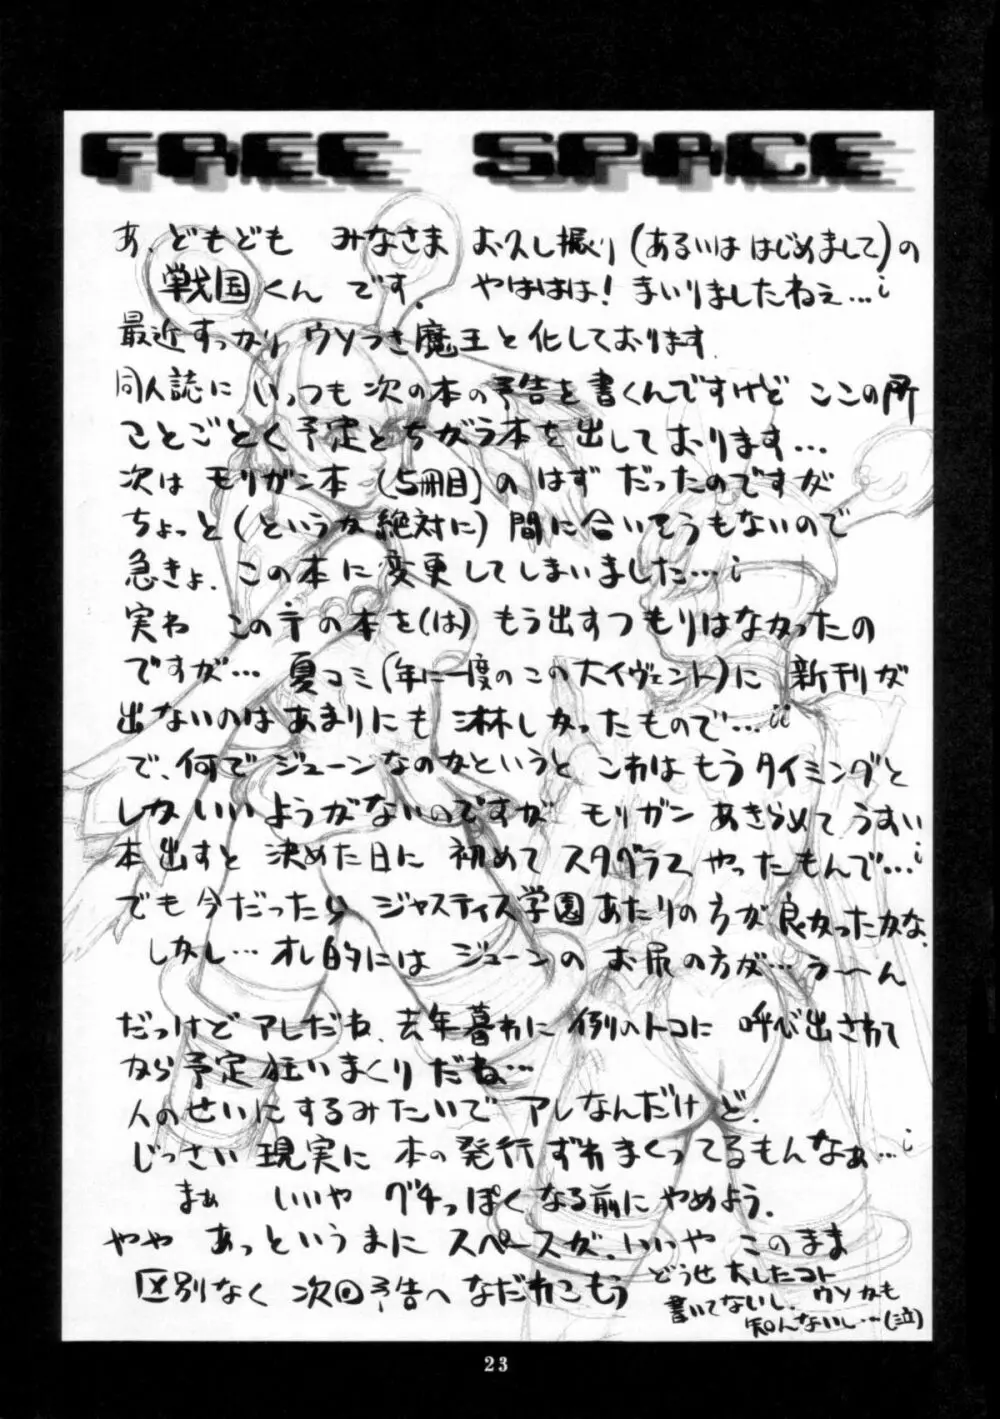 FREE SPACE
あ、どもども みなさま お久し振り(あるいは はじめまして)の
戦国くん です。 やははは! まいりましたねぇ…
最近すっかり ウソつき魔王と化しております。
同人誌に いっつも 次の本の予告を書くんですけど ここの所
ことごとく予定とちがう本を出しております…
次は モリガン本 (5冊目)の はず だったのですが
ちょっと(というか絶対に)間に合いそうもないので
急きょ、この本に変更してしまいました…
実わ この手の本を(は) もう出すつもりはなかったの
ですが… 夏コミ(年に一度の この大イヴェント)に 新刊が
出ないのは あまりにも 淋しかったもので…
で、何で ジューンなのかというと これは もう タイミングと
しか いいようがないのですが モリガン あきらめて うすい
本出すと 決めた日に 初めて スタグラス やったもんで…
でも今だったら ジャスティス学園 あたりの方が 良かったかな、
しかし… オレ的には ジューンの お尻の方が… う〜ん
だっけど アレだね、去年暮れに 例のトコに 呼び出されて
から 予定 狂いまくりだね…
人のせいにするみたいで アレなんだけど、
じっさい 現実に 本の発行 ずれまくってるもんなぁ…
まぁ いいや グチっぽくなる前に やめよう。
やや あっというまに スペースが、いいや このまま
区別なく 次回予告へ なだれこもう
どうせ 大したコト
書いてないし、 ウソかも
知んないし…(泣)
23